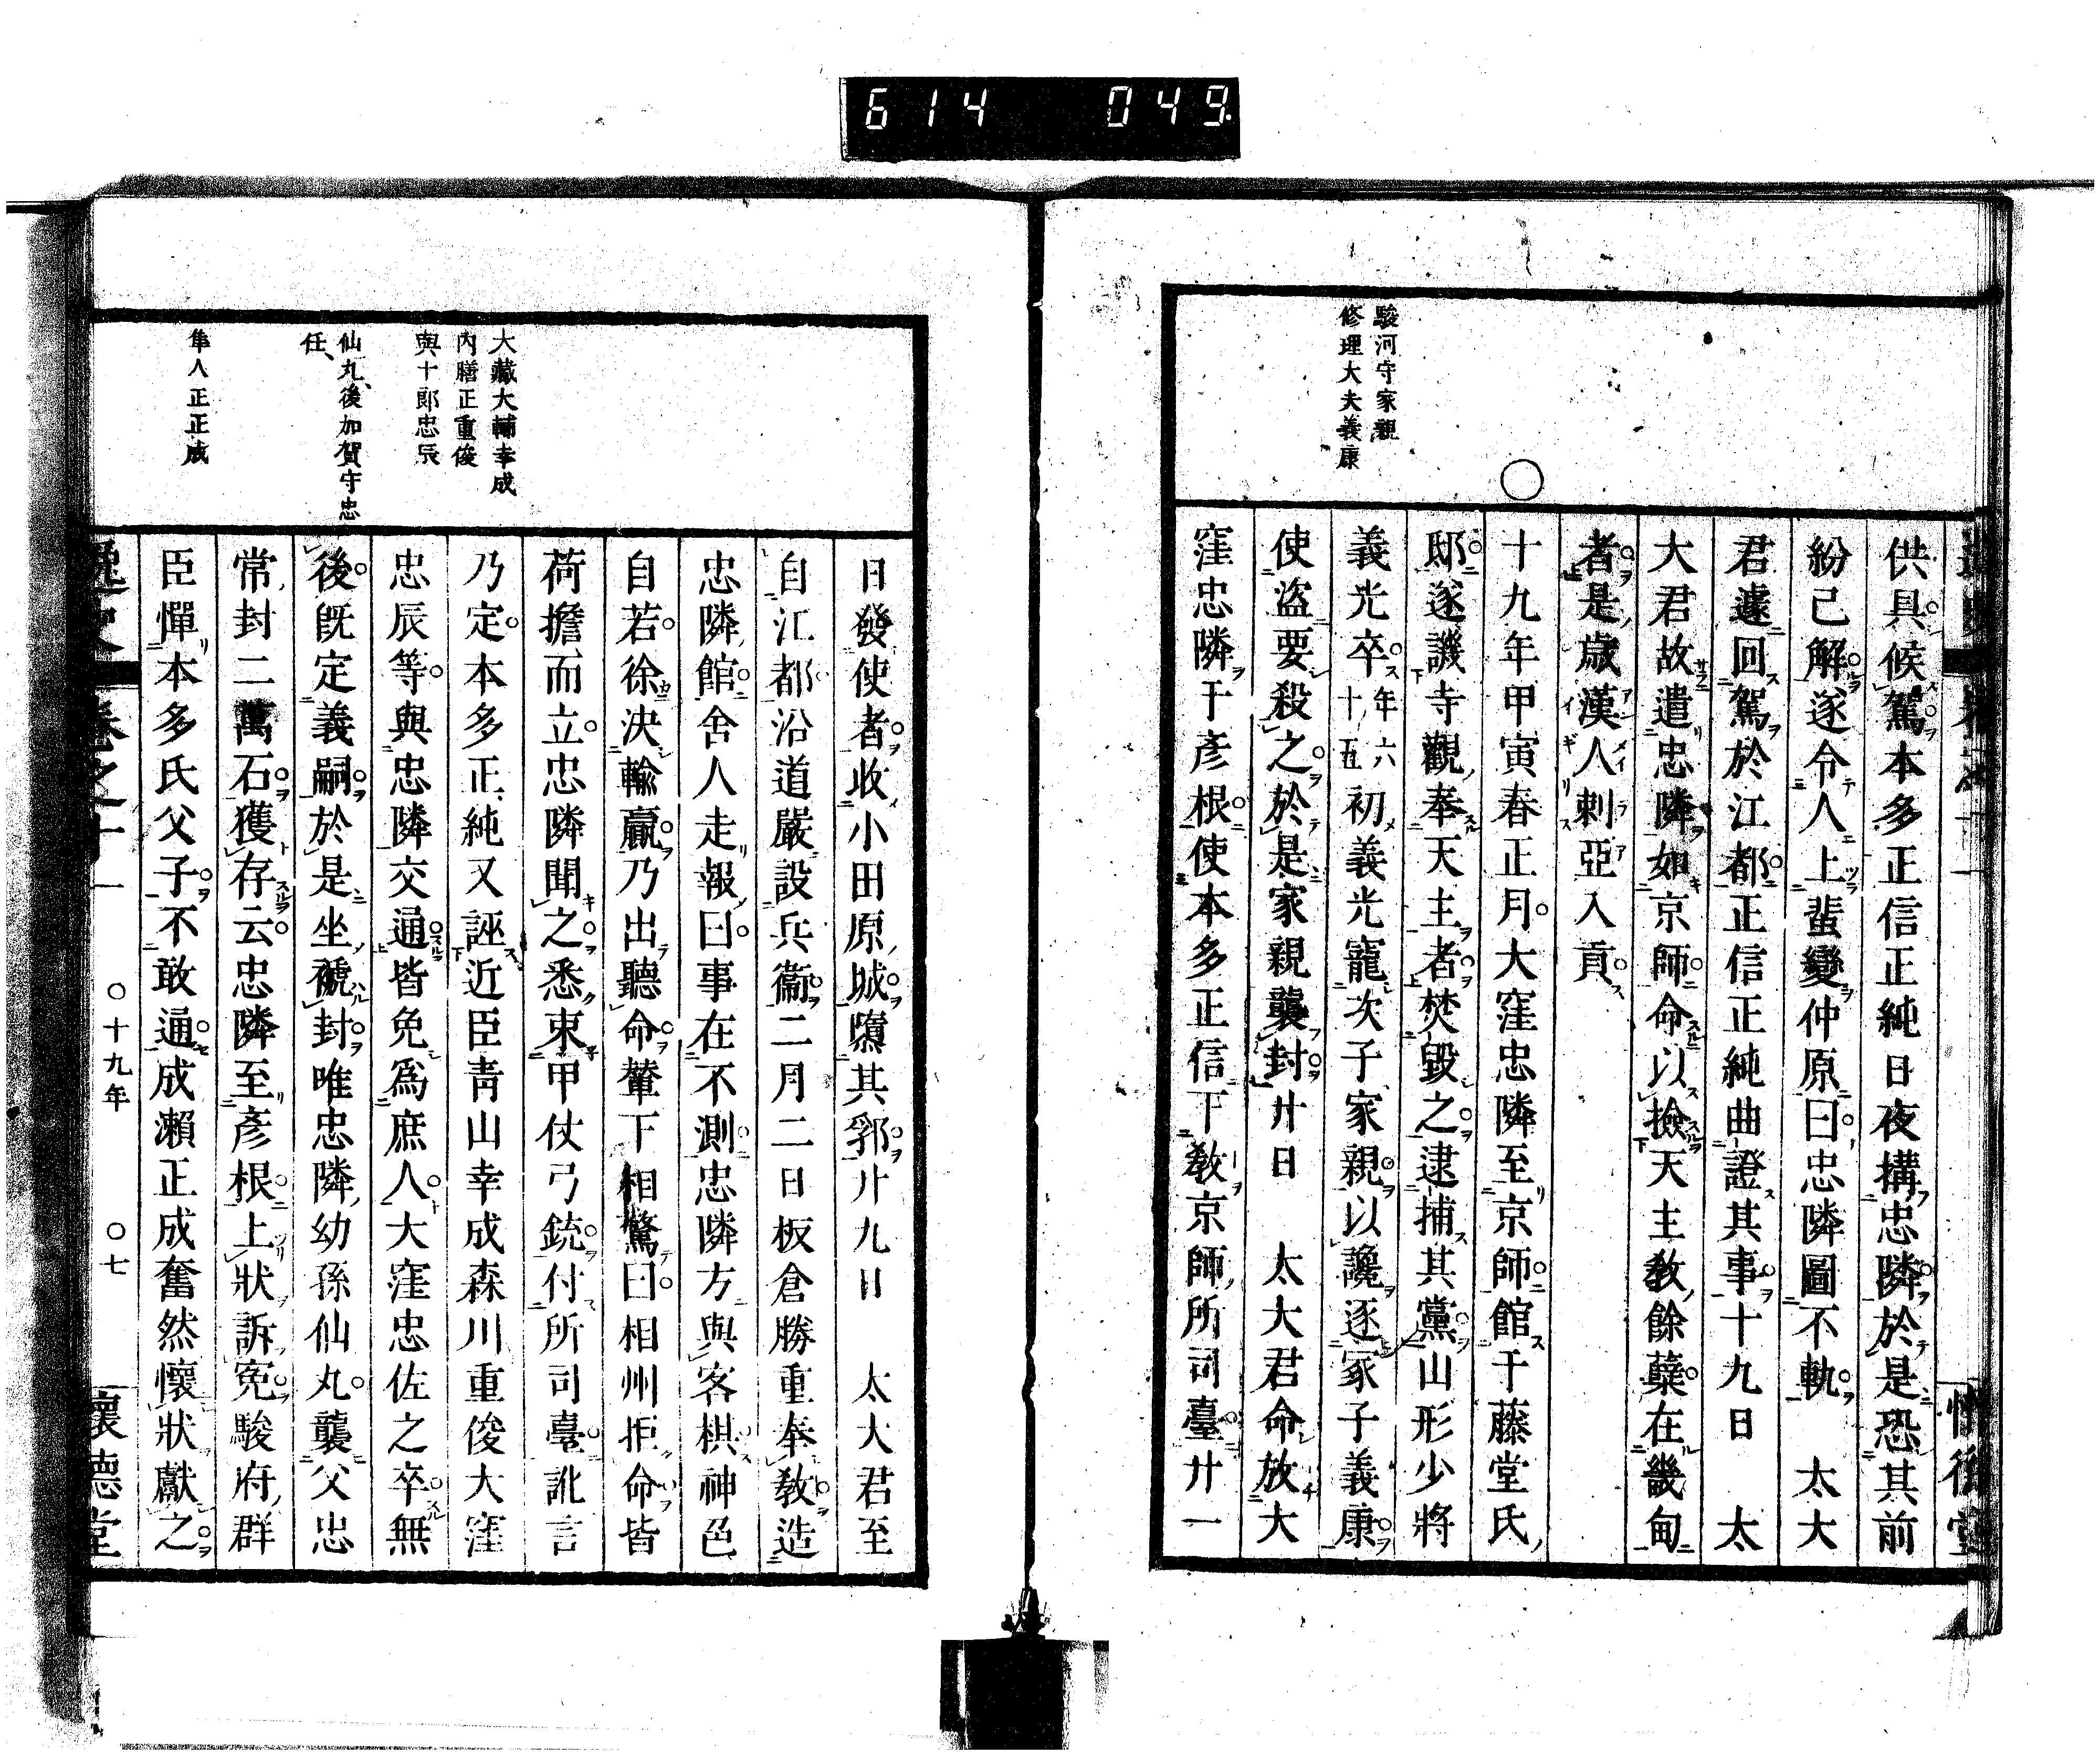 614 049
駿河守家親
修理大夫義康
供具候駕本多正信正純日夜搆忠隣於是恐其前
紛已解遂令人上蜚變仲原曰忠隣圖不軌 太大
君遽回駕於江都正信正純曲證其事十九日 太
大君故遣忠隣如京師命以撿天主教餘蘖在畿甸
者是歲漢人剌亞入貢
十九年甲寅春正月大窪忠隣至京師館于藤堂氏
邸遂譏寺觀奉天主者焚毀之逮捕其黨山形少將
義光卒年六十五初義光寵次子家親以讒逐冢子義康
使盜要殺之於是家親襲封廿日 太大君命放大
窪忠隣于彥根使本多正信下教京師所司臺廿一
大藏大輔幸成
內膳正重俊
與十郎忠辰
仙丸後加賀守忠
任
隼人正正成
日發使者收小田原城隳其郛廿九日 太大君至
自江都沿道嚴設兵衞二月二日板倉勝重奉教造
忠隣館舍人走報曰事在不測忠隣方與客棋神色
自若徐決輸贏乃出聽命輦下相驚曰相州拒命皆
荷擔而立忠隣聞之悉束甲仗弓銃付所司臺訛言
乃定本多正純又誣近臣靑山幸成森川重俊大窪
忠辰等與忠隣交通皆免爲庶人大窪忠佐之卒無
後旣定義嗣於是坐褫封唯忠隣幼孫仙丸襲父忠
常封二萬石獲存云忠隣至彥根上狀訴冤駿府群
臣憚本多氏父子不敢通成瀨正成奮然懷狀獻之
逸史 卷之十一 ○十九年 ○七 懷德堂